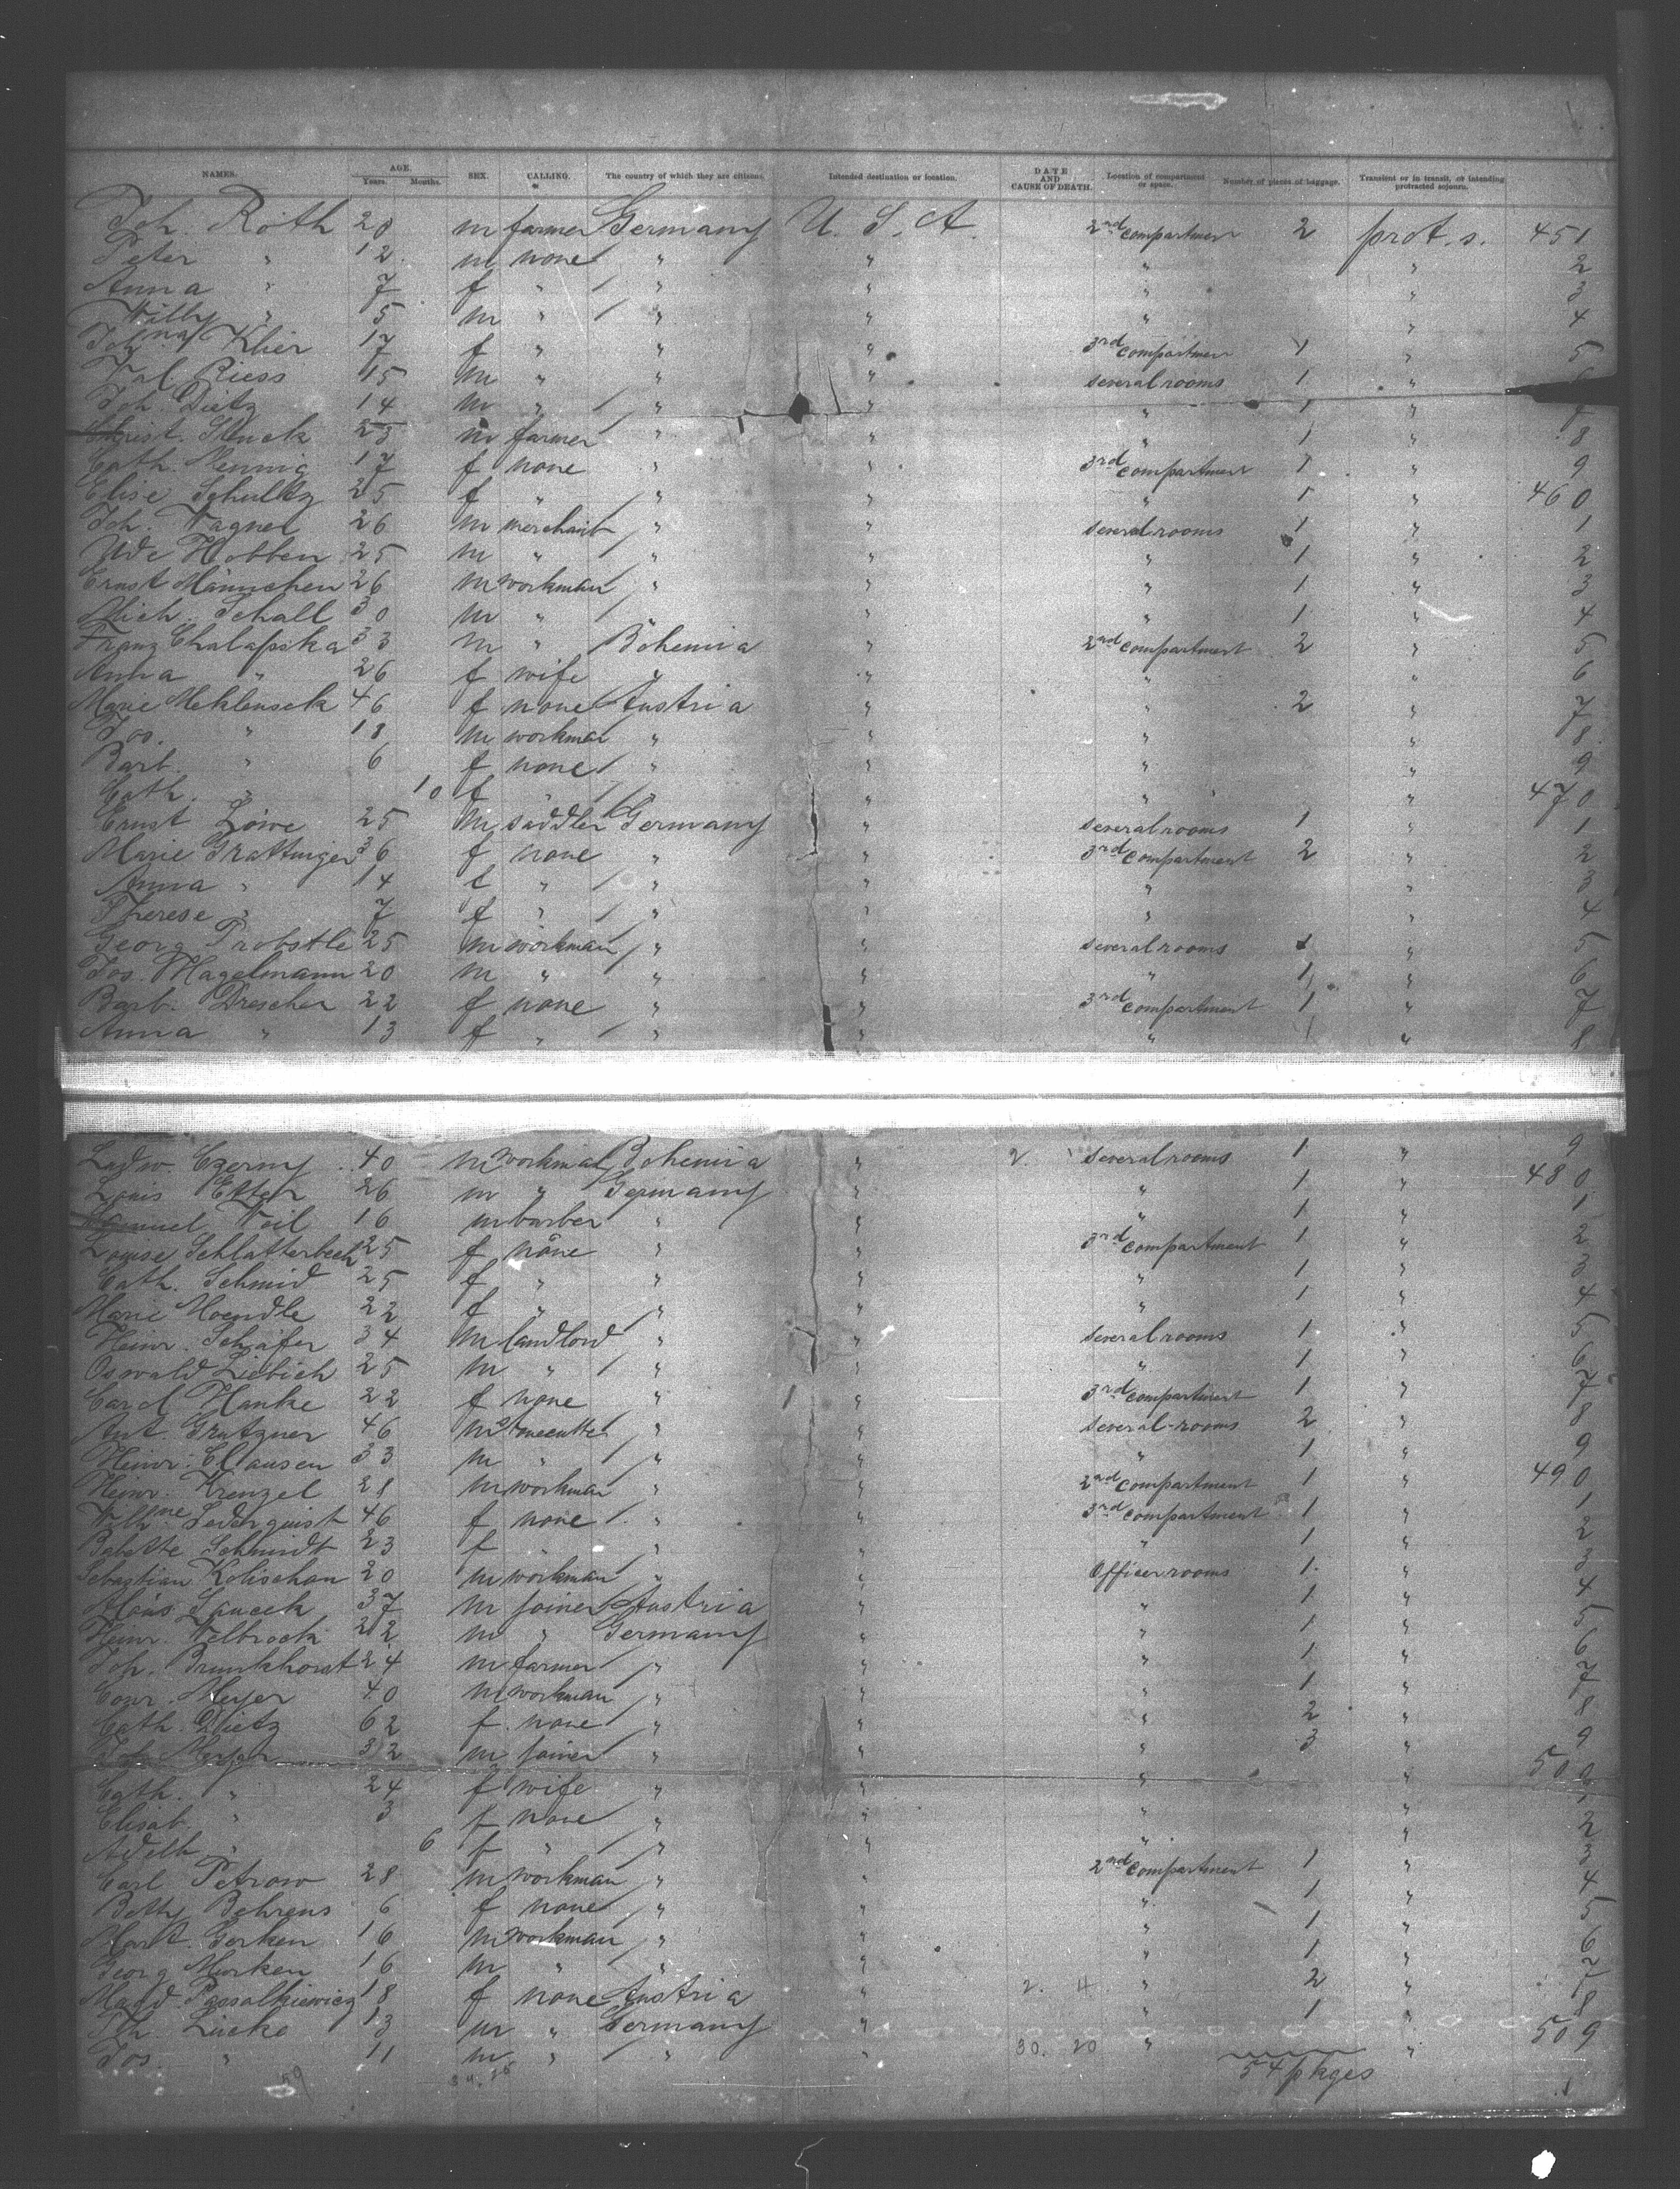 NAMES. AGE. Years. Months. SEX. CALLING. The country of which they are citizens. Intended destination or location. DATE AND CAUSE OF DEATH. Location of compartment or space. Number of pieces of baggage. Transient or in transit, or intending protracted sojourn.
Joh. Roth 20 m farmer Germany U. S. A. 2nd compartment 2 prot. s. 451
Peter " 12 m none " " " " 2
Anna " 7 f " " " " " 3
Willy " 5 m " " " " " 4
Johna Klier 17 f " " " 3rd compartment 1 " 5
Val. Riess 15 m " " " several rooms 1 "
Joh. Dietz 14 m " " " " 1 " 7
Christ. Stuck 23 m farmer " " " 1 " 8
Cath. Mennig 17 f none " " 3rd compartment 1 " 9
Elise Schultz 25 f " " " " 1 " 460
Joh. Wagner 26 m merchant " " several rooms 1 " 1
Ude Hobben 25 m " " " " 1 " 2
Ernst Männchen 26 m workman " " " 1 " 3
Mich. Schall 30 m " " " " 1 " 4
Franz Chalapska 33 m " Bohemia " 2nd compartment 2 " 5
Anna " 26 f wife " " " " 6
Marie Meklensek 46 f none Austria " " 2 " 7
Jos. " 18 m workman " " " " 8
Barb. " 6 f none " " " " 9
Cath. " 10 f " " " " " 470
Ernst Löwe 25 m saddler Germany " several rooms 1 " 1
Marie Grattinger 36 f none " " 3rd compartment 2 " 2
Anna " 14 f " " " " " 3
Therese " 7 f " " " " " 4
Georg Probstle 25 m workman " " several rooms 1 " 5
Jos. Hagelmann 20 m " " " " 1 " 6
Barb. Drescher 22 f none " " 3rd compartment 1 " 7
Anna " 13 f " " " " 1 " 8
Ludw. Czerny 40 m workman Bohemia " 2. several rooms 1 " 9
Louis Etter 26 m " Germany " " 1 " 480
Samuel Weil 16 m barber " " " 1 " 1
Louise Schlatterbeck 25 f none " " 3rd compartment 1 " 2
Cath. Schmid 25 f " " " " 1 " 3
Marie Moendle 22 f " " " " 1 " 4
Heinr. Schäfer 34 m landlord " " several rooms 1 " 5
Oswald Liebich 25 m " " " " 1 " 6
Carol Hanke 22 f none " " 3rd compartment 1 " 7
Ant. Grutzner 46 m stonecutter " " several rooms 2 " 8
Heinr. Clausen 33 m " " " " 1 " 9
Heinr. Krenzel 28 m workman " " 2nd compartment 1 " 490
Wilhne Sederquist 46 f none " " 3rd compartment 1 " 1
Babette Schmidt 23 f " " " " 1 " 2
Sebastian Kolischan 20 m workman " " Officer rooms 1 " 3
Alois Saucek 37 m joiner Austria " " 1 " 4
Heinr. Velbrock 22 m " Germany " " 1 " 5
Joh. Brunkhorst 24 m farmer " " " 1 " 6
Conr. Meyer 40 m workman " " " 1 " 7
Cath. Dietz 62 f none " " " 2 " 8
Joh. Meyer 32 m joiner " " " 3 " 9
Cath. " 24 f wife " " " " 500
Elisab. " 3 f none " " " "
Adelh. " 6 f " " " " " 2
Carl Petrow 28 m workman " " 2nd compartment 1 " 3
Betty Behrens 6 f none " " " 1 " 4
Mart. Gerken 16 m workman " " " 1 " 5
Georg Murken 16 m " " " " 1 " 6
Madd. Passalkiewicz 18 f none Austria " 2. 4 " 2 " 7
Th. Lücke 13 m " Germany " " 1 " 8
Jos. " 11 m " " " 30. 20 " " 509
59 34. 25 54 pkges
5